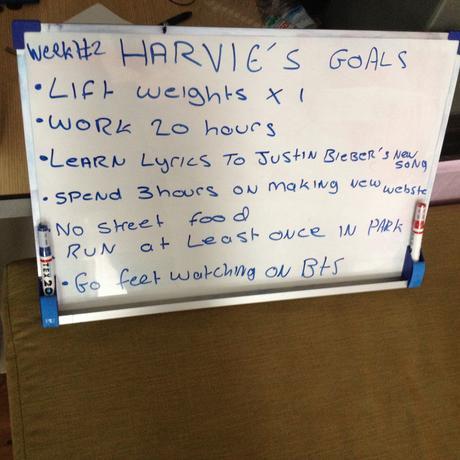 Week #2 HARVIE'S GOALS
• LIFT weights x 1
• WORK 20 hours
• LEARN Lyrics To JUSTIN BIEBER'S NEW SONG
• SPEND 3 hours ON making New webste
No street food
RUN at Least once IN PARK
• Go feet watching on BtS